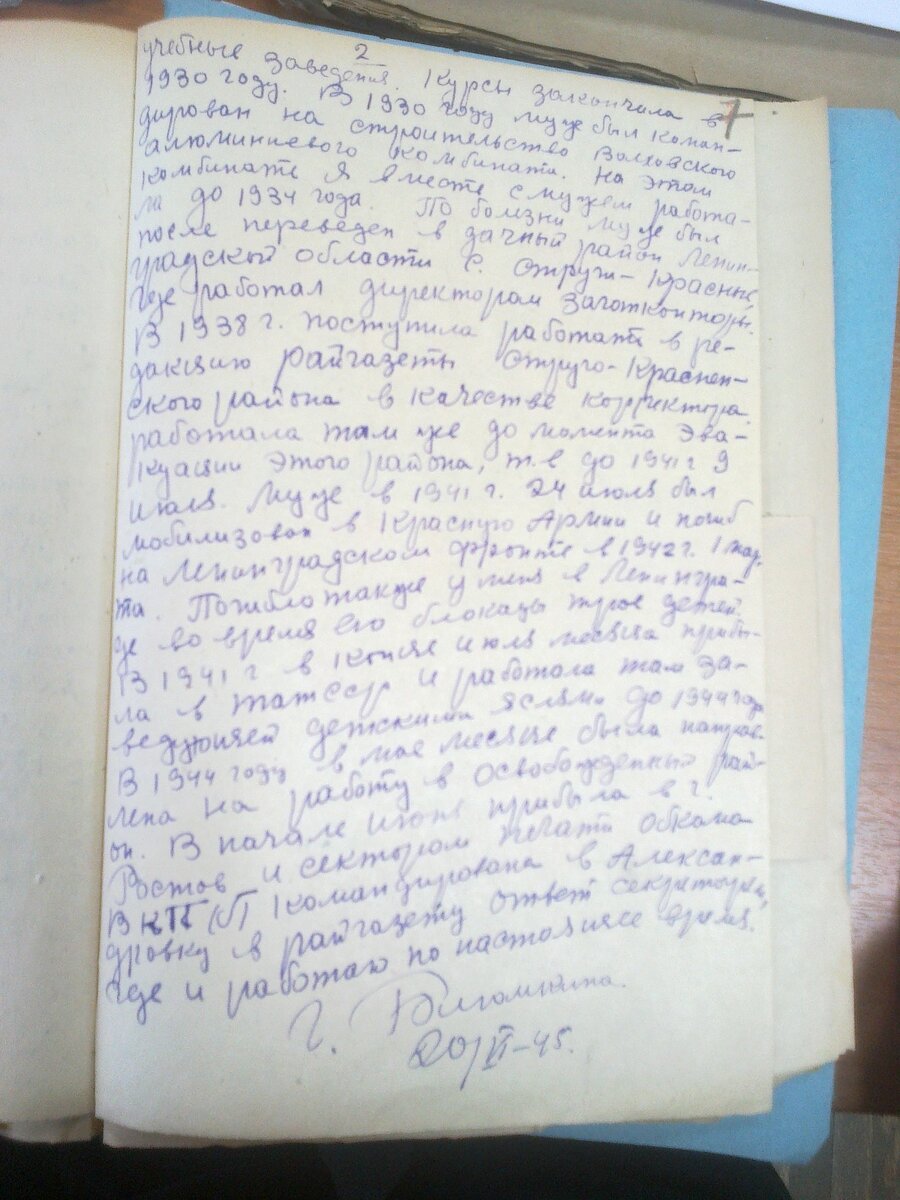 2
7
учебные заведения. Курсы закончила в
1930 году. В 1930 году муж был коман-
дирован на строительство Волховского
алюминиевого комбината. На этом
комбинате я вместе с мужем работа-
ла до 1934 года. По болезни муж был
после переведен в дачный район Ленин-
градской области с. Струги-Красные,
где работал директором заготконторы.
В 1938 г. поступила работать в ре-
дакцию райгазеты Струго-Краснен-
ского района в качестве корректора
работала там же до момента эва-
куации этого района, т.е до 1941 г 9
июля. Муж в 1941 г. 24 июля был
мобилизован в Красную Армии и погиб
на Ленинградском фронте в 1942 г. 1 мар-
та. Погибло также у меня в Ленингра-
де во время его блокады трое детей.
В 1941 г в конце июля месяца прибы-
ла в татсср и работала там за-
ведующей детскими яслями до 1944 года
В 1944 году в мае месяце была направ-
лена на работу в освобожденный рай-
он. В начале июня прибыла в г.
Ростов и сектором печати обкома
ВКП(б) командирована в Алексан-
дровку в райгазету ответ секретарем,
где и работаю по настоящее время.
Г.
20/VI-45.